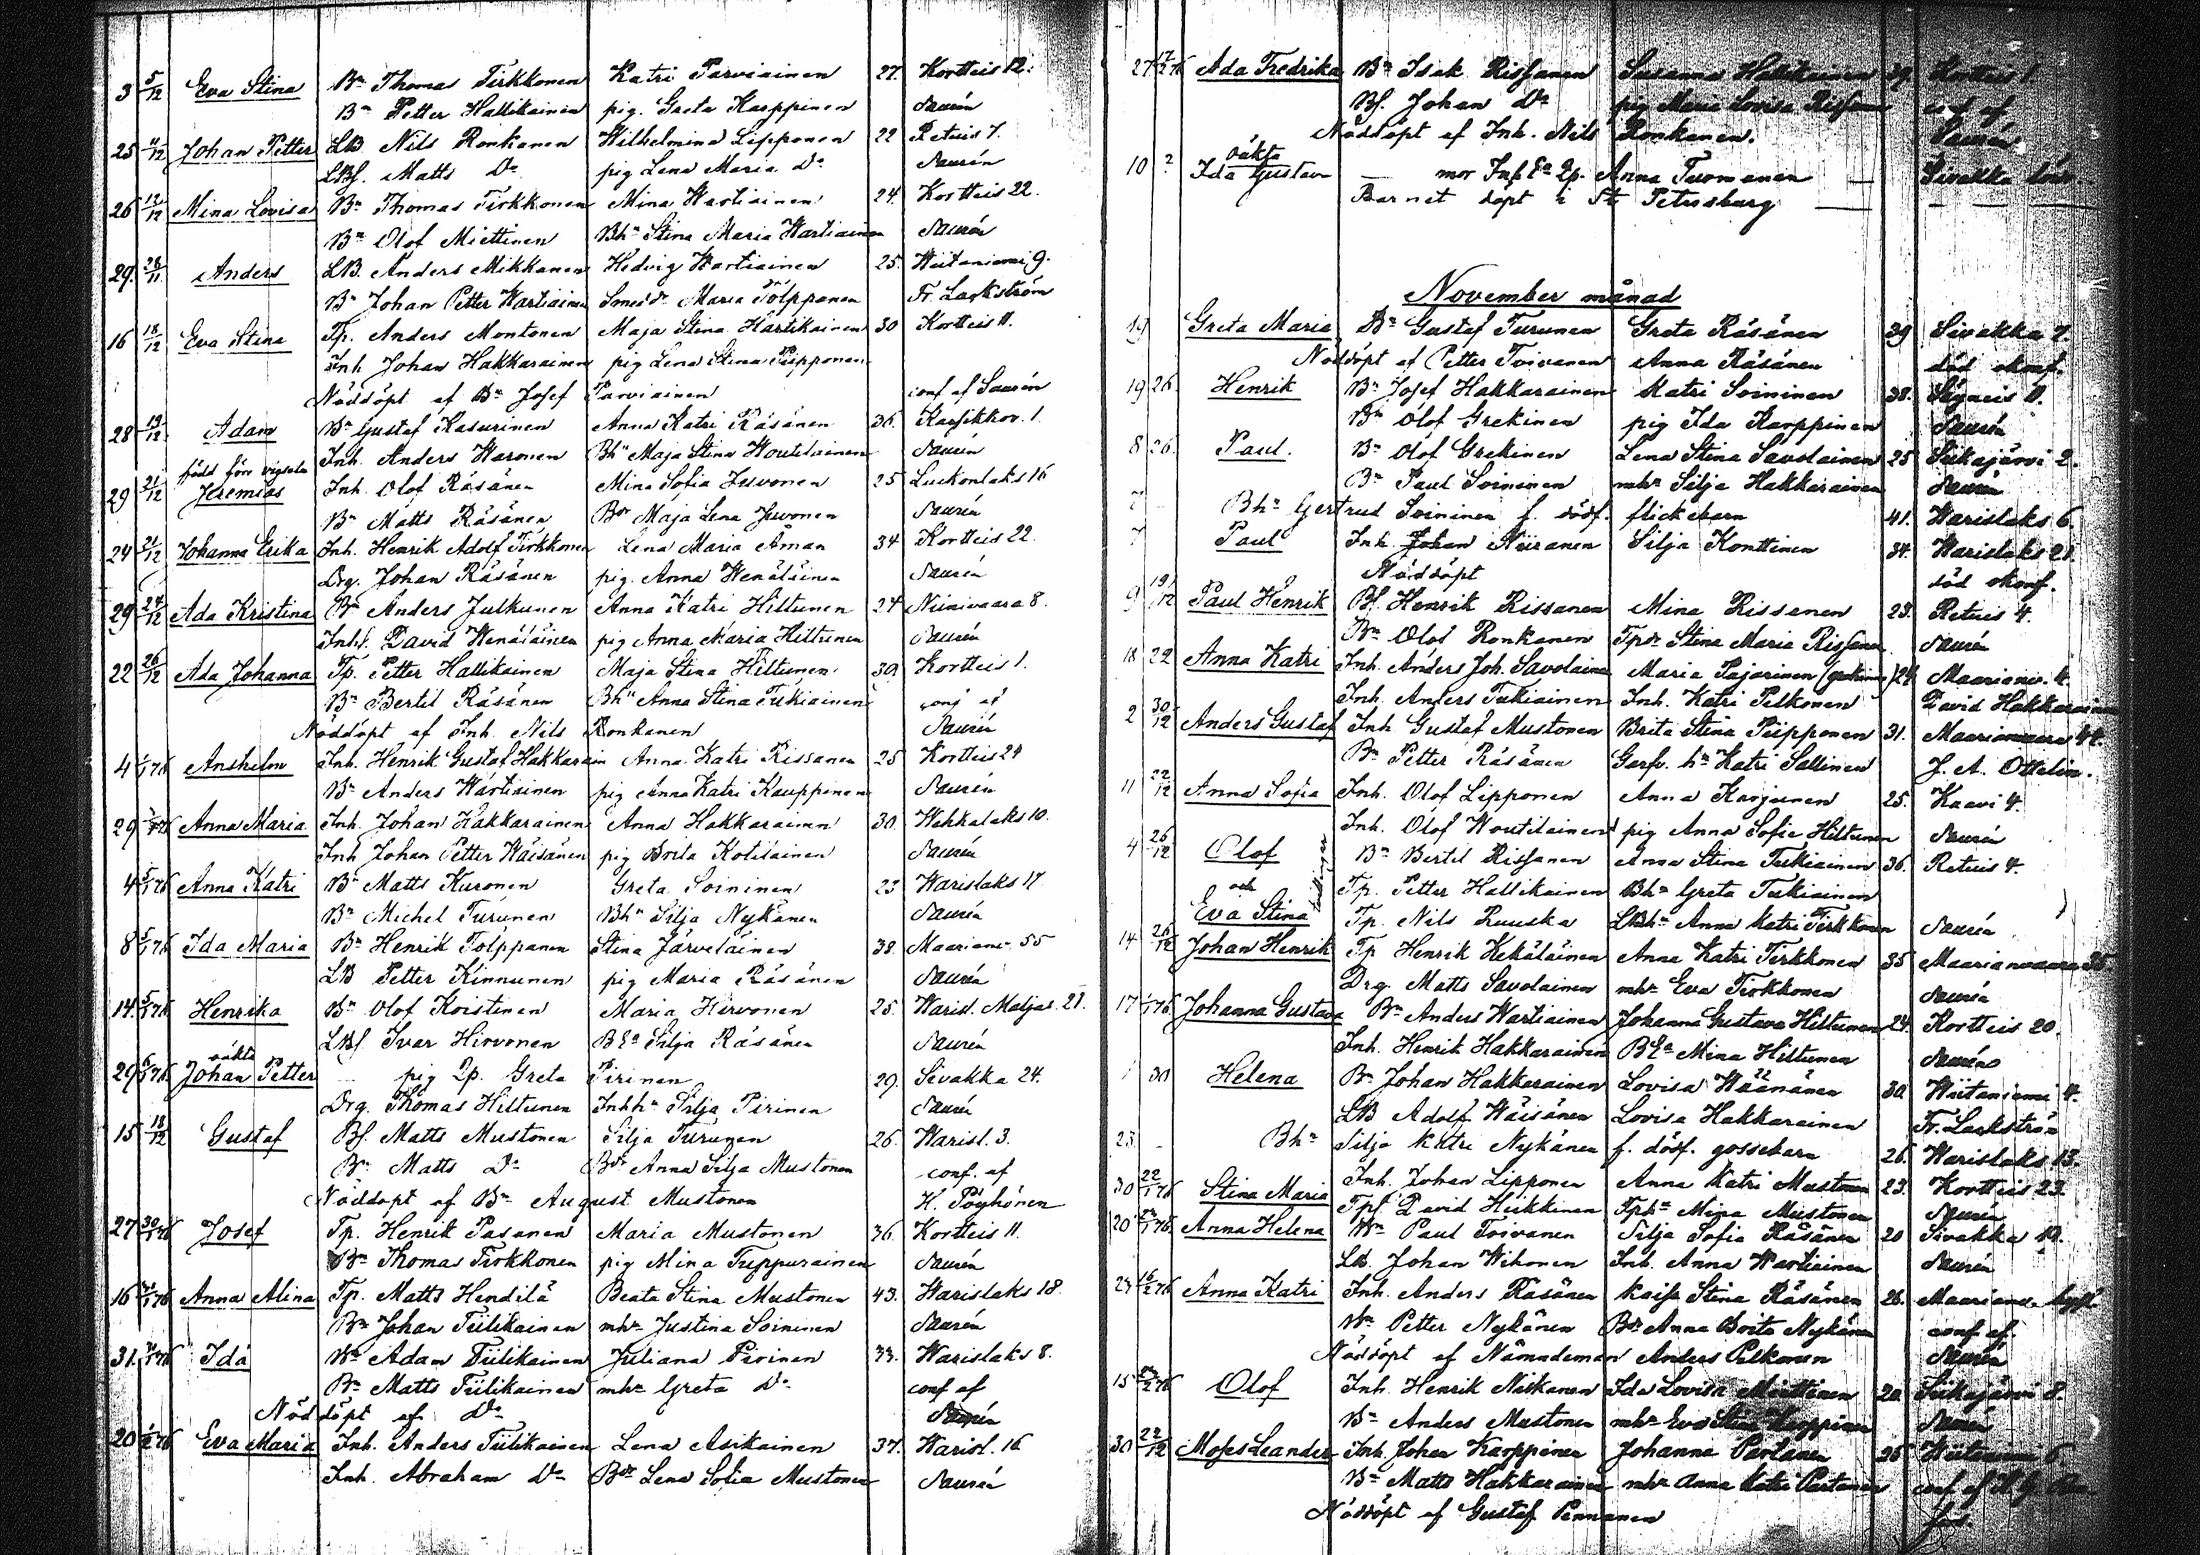 3 5/12 Eva Stina Bn Thomas Tirkkonen Katri Parviainen 27. Kortteis 12.
Bn Petter Hallikainen pig. Greta Karppinen Saurén
25 11/12 Johan Petter LB Nils Ronkanen Wilhelmina Lipponen 22 Retuis 7.
LBf. Matts Do pig Lena Maria Do Saurén
26 12/12 Mina Lovisa Bn Thomas Tirkkonen Mina Wartiainen 24. Kortteis 22.
Bn Olof Miettinen Bhu Stina Maria Wartiainen Saurén
29. 28/11 Anders LB. Anders Mikkanen Hedvig Wartiainen 25. Wiitaniemi 9.
Bn Johan Petter Wartiainen Smedd. Maria Tolppanen Fr. Lackström
16 18/12 Eva Stina Tp. Anders Montonen Maja Stina Hartikainen 30 Kortteis 11.
Inh Johan Hakkarainen pig Lena Stina Piipponen
Nöddöpt af Bn Josef Parviainen conf af Saurén
28 19/12 Adam Bn Gustaf Kasurinen Anna Katri Räsänen 36. Rasikkov. 1.
Inh. Anders Waronen Bhu Maja Stina Woutilainen Saurén
född före vigseln
29 21/12 Jeremias Inh. Olof Räsänen Mina Sofia Juvonen 25 Luikonlaks 16
Bn Matts Räsänen Bdr Maja Lena Juvonen Saurén
24 21/12 Johanna Erika Inh. Henrik Adolf Tirkkonen Lena Maria Åman 34 Kortteis 22.
Drg. Johan Räsänen pig. Anna Wenäläinen Saurén
29 24/12 Ada Kristina Bn Anders Julkunen Anna Katri Hiltunen 24 Niinivaara 8.
Inhf. David Wenäläinen pig Anna Maria Hiltunen Saurén
22 26/12 Ada Johanna Tp. Petter Hallikainen Maja Stina Hiltunen 30. Kortteis 1.
Bn Bertil Räsänen Bhu Anna Stina Tukiainen conf af
Nöddöpt af Inh. Nils Ronkanen Saurén
4 1/1 76 Anshelm Inh. Henrik Gustaf Hakkarain Anna Katri Rissanen 25 Kortteis 24
Bn Anders Wartiainen pig Anna Katri Kauppinen Saurén
29 Anna Maria Inh. Johan Hakkarainen Anna Hakkarainen 30. Wehkalaks 10.
Inh Johan Petter Wäisänen pig Brita Kotilainen Saurén
4 5/1 76 Anna Katri Bn Matts Kuronen Greta Soininen 23 Warislaks 17
Bn Michel Turunen Bhu Silja Nykänen Saurén
8 5/1 76 Ida Maria Bn Henrik Tolppanen Stina Järveläinen 38. Maarianv. 55
LB Petter Kinnunen pig Maria Räsänen Saurén
14. 5/1 76 Henrika Bn Olof Koistinen Maria Hirvonen 25. Warisl. Maljas. 21.
LBf Ivar Hirvonen BEa Silja Räsänen Saurén
oäkta
29 6/1 76 Johan Petter — pig Qp. Greta Pirinen 29. Sivakka 24.
Drg. Thomas Hiltunen Inhhu Silja Pirinen Saurén
15 18/12 Gustaf Bf. Matts Mustonen Silja Turunen 26. Warisl. 3.
Bn Matts Do Bdr Anna Silja Mustonen conf. af
Nöddöpt af Bn August Mustonen H. Pöyhönen
27 30/1 76 Josef Tp. Henrik Pasanen Maria Mustonen 36. Kortteis 11.
Bn Thomas Tirkkonen pig Mina Tuppurainen Saurén
16 Anna Alina Tp. Matts Hendilä Beata Stina Mustonen 43. Warislaks 18.
Bn Johan Tiilikainen mhr Justina Soininen Saurén
31. Ida Bn Adam Tiilikainen Juliana Pirinen 33. Warislaks 8.
Bn Matts Tiilikainen mhr Greta Do conf af
Nöddöpt af Do Saurén
20 1/2 76 Eva Maria Inh. Anders Tiilikainen Lena Asikainen 37. Warisl. 16
Inh. Abraham Do Bdr Lena Sofia Mustonen Saurén
27 17/2 76 Ada Fredrika Bn Isak Rissanen Susanna Hakkarainen 39. Kortteis 1.
Bf. Johan Do pig Maria Lovisa Rissanen conf af
Nöddöpt af Inh. Nils Ronkanen. Saurén
oäkta
10 ? Ida Gustava — mor Inh Ea Qp. Anna Tuomanen — Sivakka
Barnet döpt i St. Petersburg
November månad
19 Greta Maria Bn Gustaf Turunen Greta Räsänen 39 Sivakka 7.
Nöddöpt af Petter Toivanen Anna Räsänen död okonf.
19 26. Henrik Bn Josef Hakkarainen Katri Soininen 38. Sägneis 11.
Bn Olof Grekinen pig Ida Karppinen Saurén
8 26. Paul. Bn Olof Grekinen Lena Stina Savolainen 25 Siikajärvi 2.
Bn Paul Soininen mhr Silja Hakkarainen Saurén
7 — Bhu Gertrud Soininen f. dödf. flickebarn 41. Warislaks 6.
7 Paul Inh. Johan Niiranen Silja Konttinen 34. Warislaks 21.
Nöddöpt död okonf.
9 19/12 Paul Henrik Bf. Henrik Rissanen Mina Rissanen 23. Retuis 4.
Bn Olof Ronkanen Tpdr Stina Maria Rissanen Saurén
18 22 Anna Katri Inh. Anders Joh. Savolainen Maria Pajarinen 24 Maarianv. 4.
Inh. Anders Tukiainen Inh. Katri Pelkonen David Hakkarainen
2 30/12 Anders Gustaf Inh Gustaf Mustonen Brita Stina Piipponen 31. Maarianvaara 44.
Bn Petter Räsänen Garfv. hu Katri Sallinen J. A. Ottelin.
11 22/12 Anna Sofia Inh. Olof Lipponen Anna Karjunen 25. Kaavi 4.
Inh. Olof Woutilainen pig Anna Sofia Hiltunen Saurén
4 26/12 Olof Bn Bertil Rissanen Anna Stina Tukiainen 36. Retuis 4.
och Tp. Petter Hallikainen Bhu Greta Tukiainen
Eva Stina tvillingar Tp. Nils Ruuska LBhu Anna Katri Tirkkonen Saurén
14 26/12 Johan Henrik Tp Henrik Kekäläinen Anna Katri Tirkkonen 35 Maarianvaara 35
Drg. Matts Savolainen mhr Eva Tirkkonen Saurén
17 1/1 76 Johanna Gustava Bn Anders Wartiainen Johanna Gustava Hiltunen 24. Kortteis 20.
Inh. Henrik Hakkarainen BEa Mina Hiltunen Saurén
1 30 Helena Bn Johan Hakkarainen Lovisa Wäänänen 30. Wiitaniemi 4.
LB Adolf Wäisänen Lovisa Hakkarainen Fr. Lackström
23 — Bhu Silja Katri Nykänen f. dödf. gossebarn 26. Warislaks 13.
30 22/1 76 Stina Maria Inh. Johan Lipponen Anna Katri Mustonen 23. Kortteis 23.
Tpf. David Heikkinen Tphu Mina Mustonen Saurén
20 Anna Helena Bn Paul Toivanen Silja Sofia Räsänen 20 Sivakka 19.
LB. Johan Wihonen Inh. Anna Wartiainen Saurén
24 16/2 76 Anna Katri Inh. Anders Räsänen Kaisa Stina Räsänen 26. Maarianv.
Bn Petter Nykänen Bdr Anna Brita Nykänen conf af
Nöddöpt af Nämndeman Anders Pelkonen Saurén
15 Olof Inh. Henrik Niskanen Ida Lovisa Miettinen 20. Siikajärvi 8.
Bn Anders Mustonen mhr Eva Stina Karppinen Saurén
30 22/12 Moses Leander Inh Johan Karppinen Johanna Partanen 25 Wiitaniemi 6.
Bn Matts Hakkarainen mhr Anna Katri Partanen conf af
Nöddöpt af Gustaf Pennanen